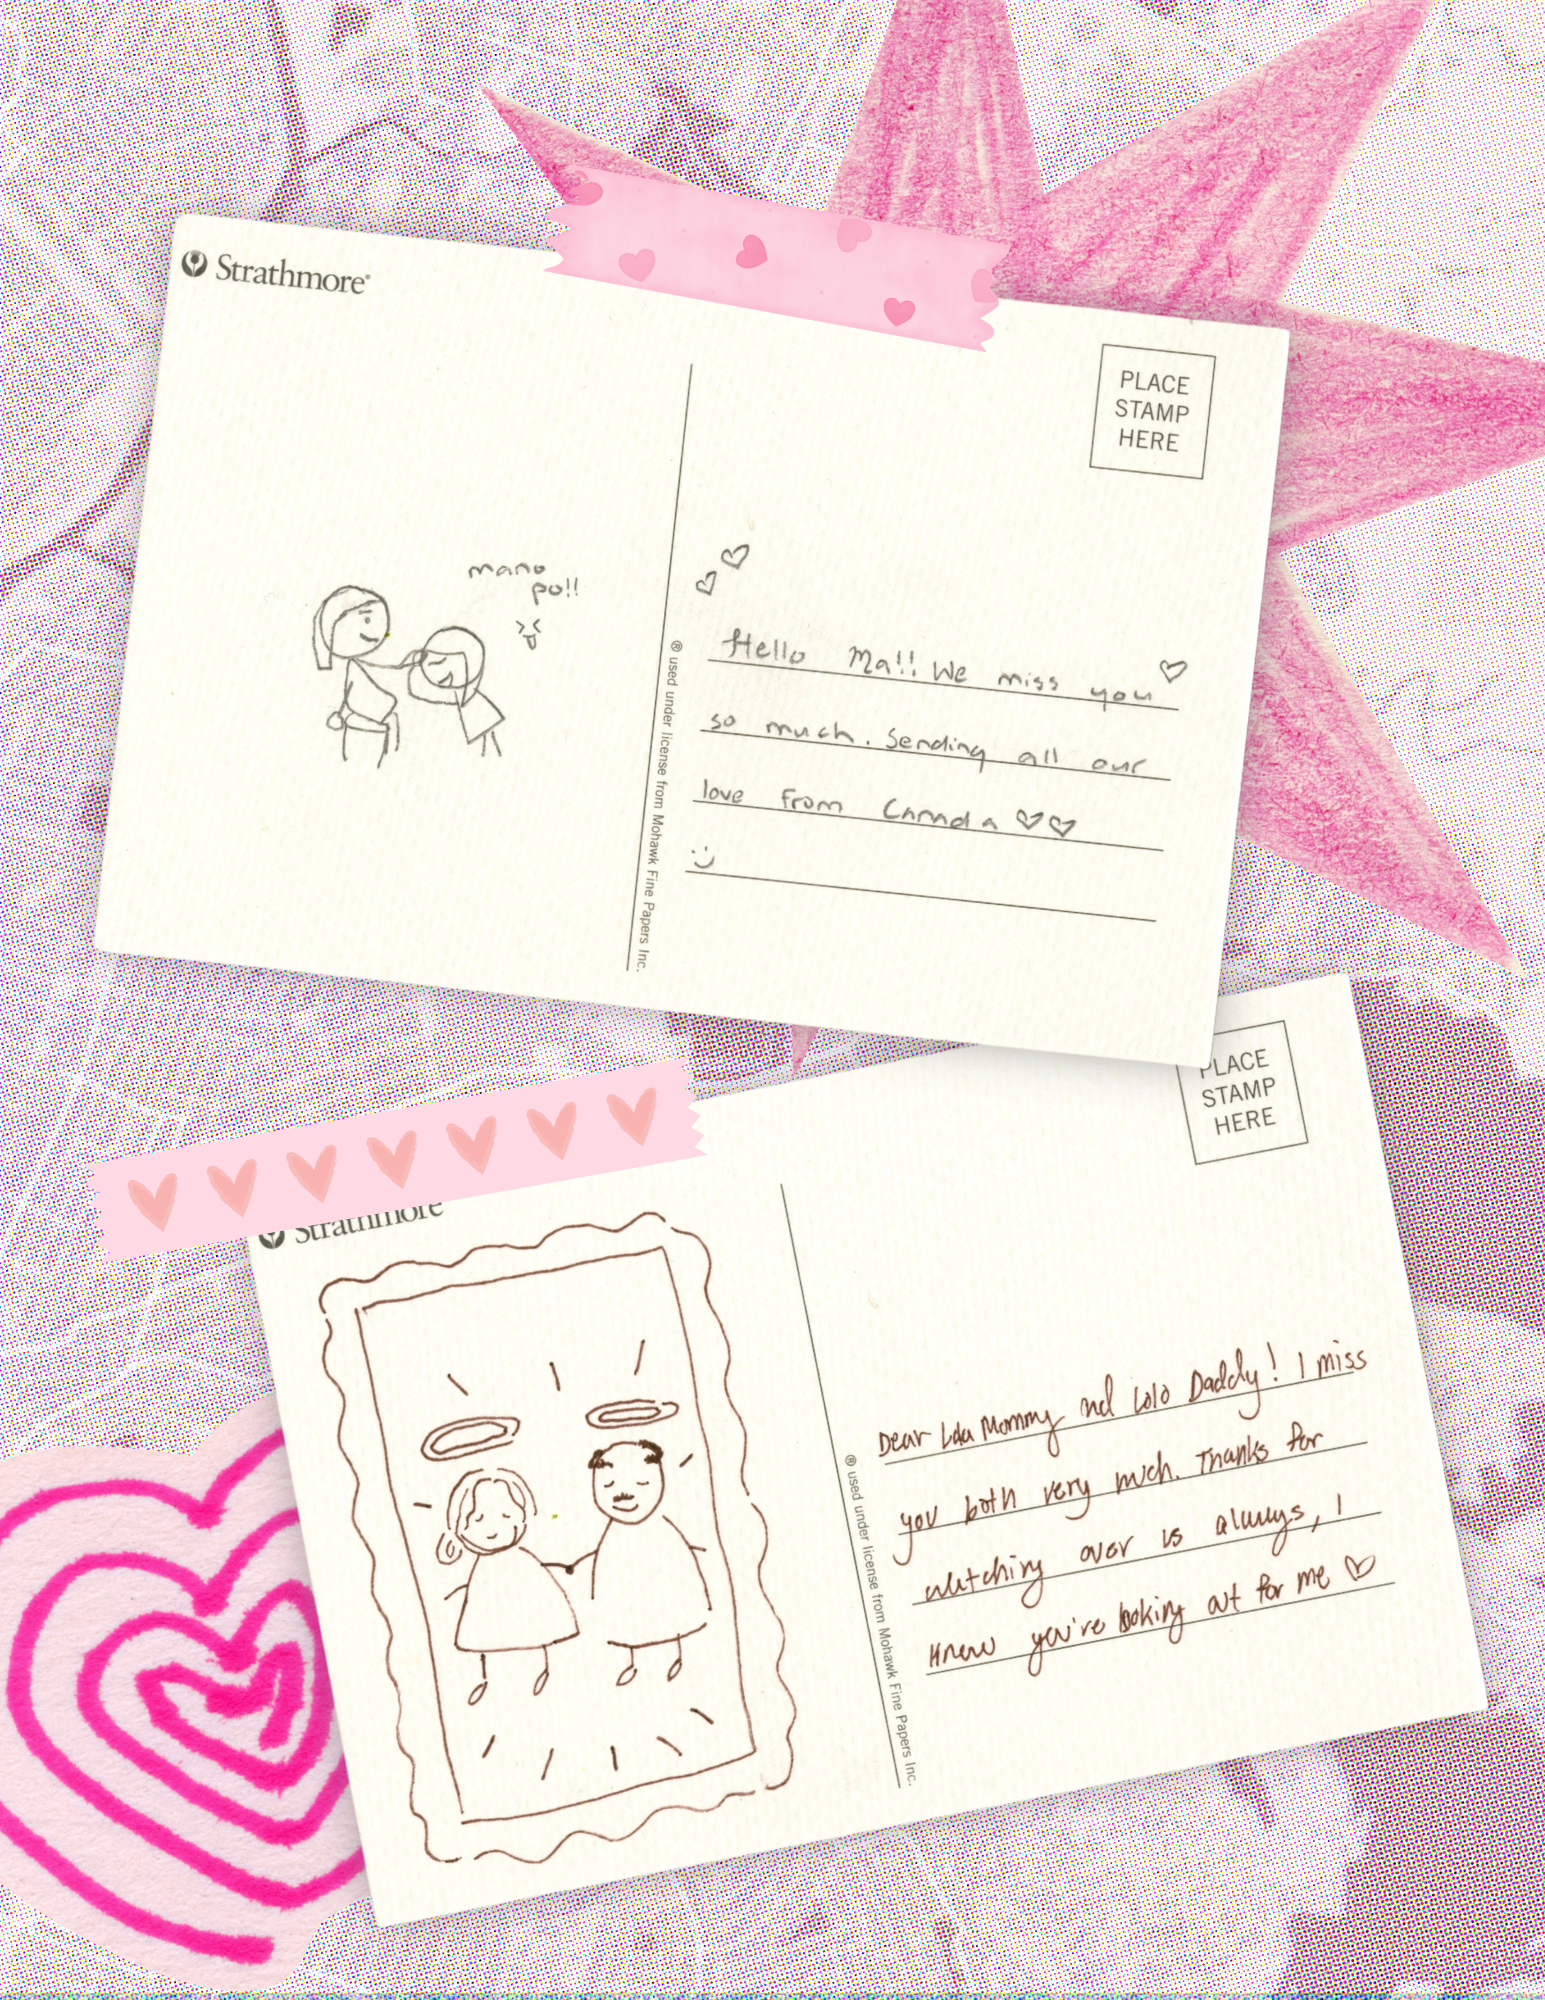 Strathmore®
PLACE
STAMP
HERE
mano
po!!
Hello Ma!! We miss you
so much. Sending all our
love from Canada
® used under license from Mohawk Fine Papers Inc.
Strathmore
PLACE
STAMP
HERE
Dear Lola Mommy and Lolo Daddy! I miss
you both very much. Thanks for
watching over us always, I
know you're looking out for me
® used under license from Mohawk Fine Papers Inc.